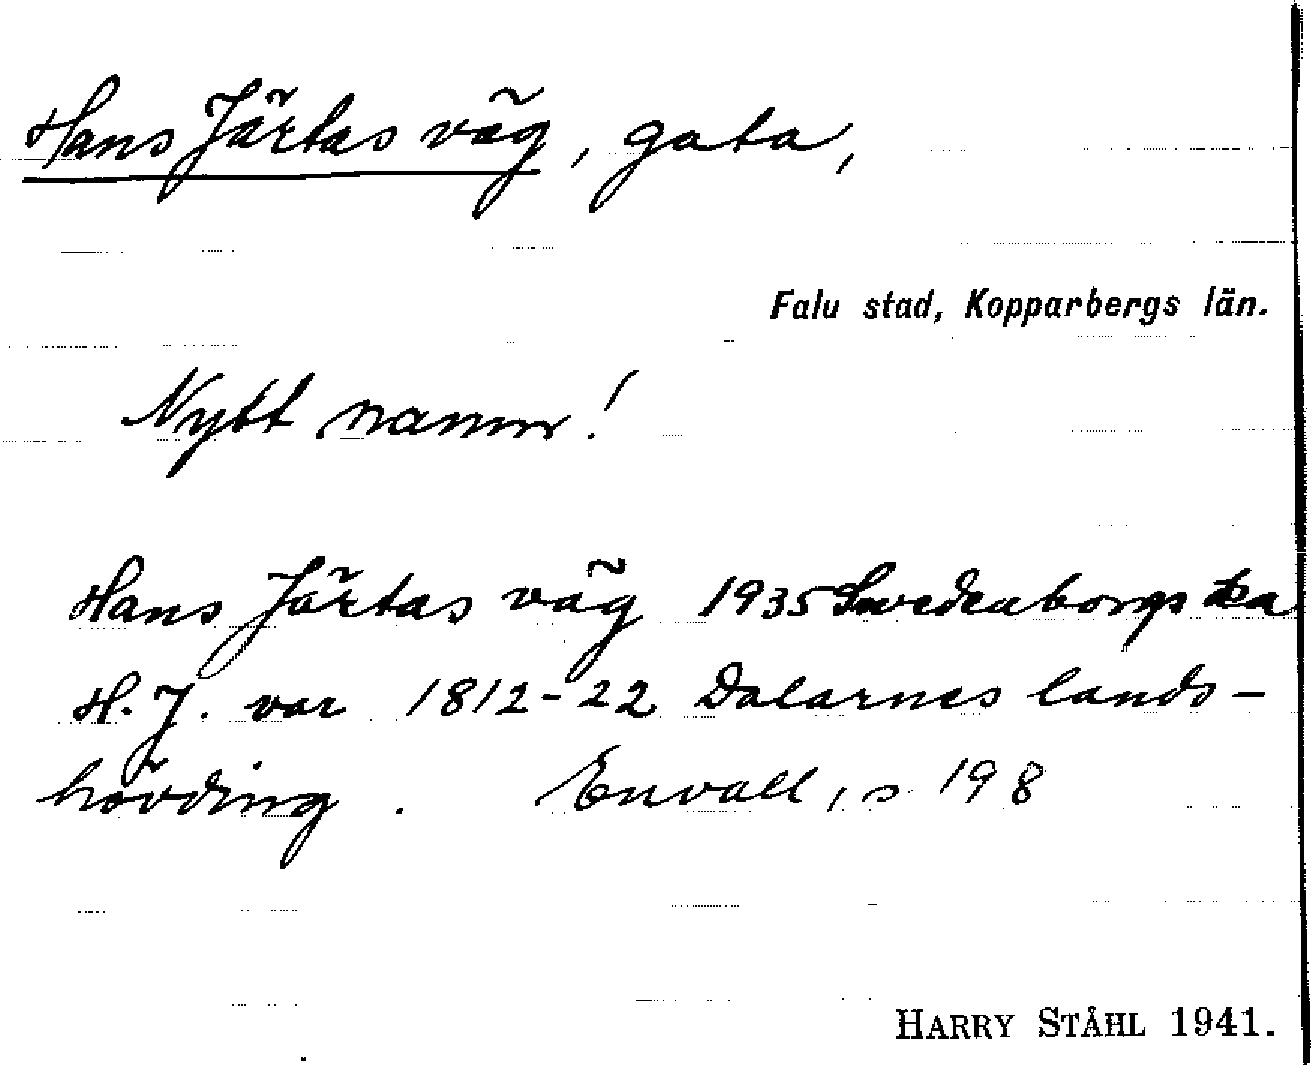 Hans Järtas väg, gata,
Falu stad, Kopparbergs län.
Nytt namn!
Hans Järtas väg 1935 Swedenborgska
H. J. var 1812-22 Dalarnes lands-
hövding. Envall, s 198
HARRY STÅHL 1941.